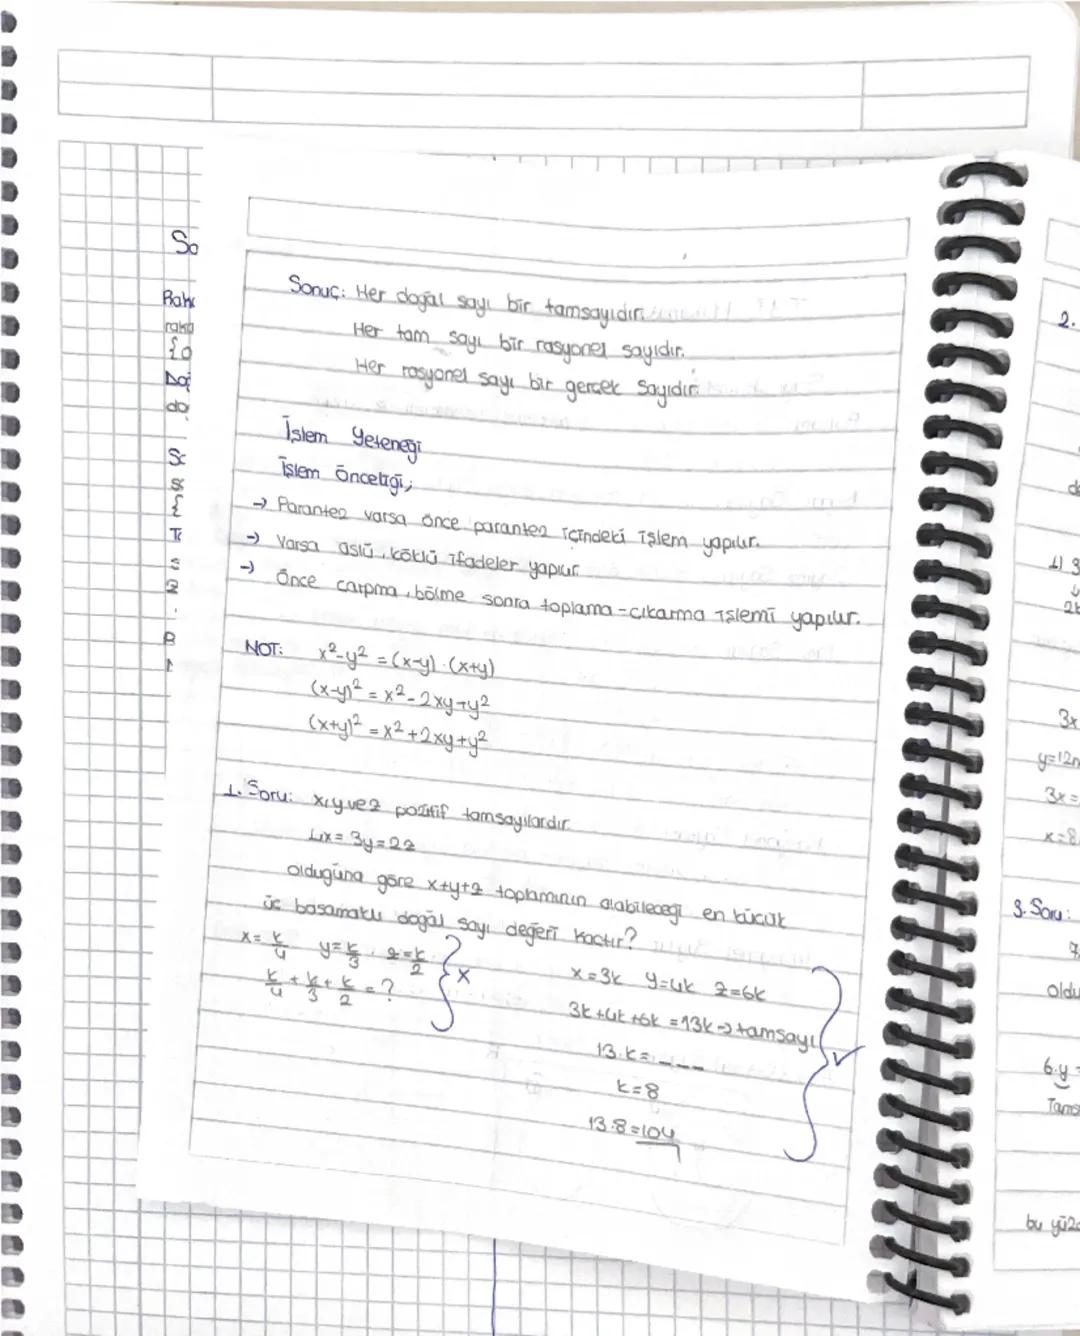 So
Rak
raka
{0
Doğ
do
Sonuç: Her doğal sayı bir tamsayıdır.
Her tam sayı bir rasyonel sayıdır.
Her rasyonel sayı bir gerçek sayıdır.
İşlem Yeteneği
İşlem Önceliği;
→ Parantez varsa önce parantez içindeki işlem yapılır.
→ Varsa üslü, köklü ifadeler yapılır.
→ Önce çarpma, bölme sonra toplama-çıkarma işlemi yapılır.
NOT: x²-y² = (x-y).(x+y)
(x-y)² = x²-2xy+y²
(x+y)² = x²+2xy+y²
1. Soru: x,y ve z pozitif tamsayılardır.
4x = 3y = 2z
olduğuna göre x+y+z toplamının alabileceği en küçük
üç basamaklı doğal sayı değeri kaçtır?
x = k/4 y = k/3 z = k/2
k/4 + k/3 + k/2 = ?
x
x = 3k y = 4k z = 6k
3k+4k+6k = 13k → tamsayı
13.k = _ _ _
k = 8
13.8 = 104
2.
3x
y=12n
3x=
x=8
3. Soru:
oldu
6.y
Tams
bu yüzd